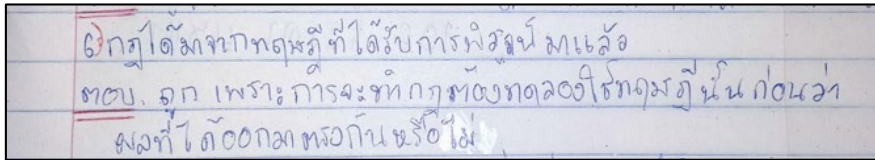 6) กฎได้มาจากทฤษฎีที่ได้รับการพิสูจน์มาแล้ว
ตอบ. ถูก เพราะการจะทำกฎต้องทดลองใช้ทฤษฎีนั้นก่อนว่า
ผลที่ได้ออกมาตรงกันหรือไม่